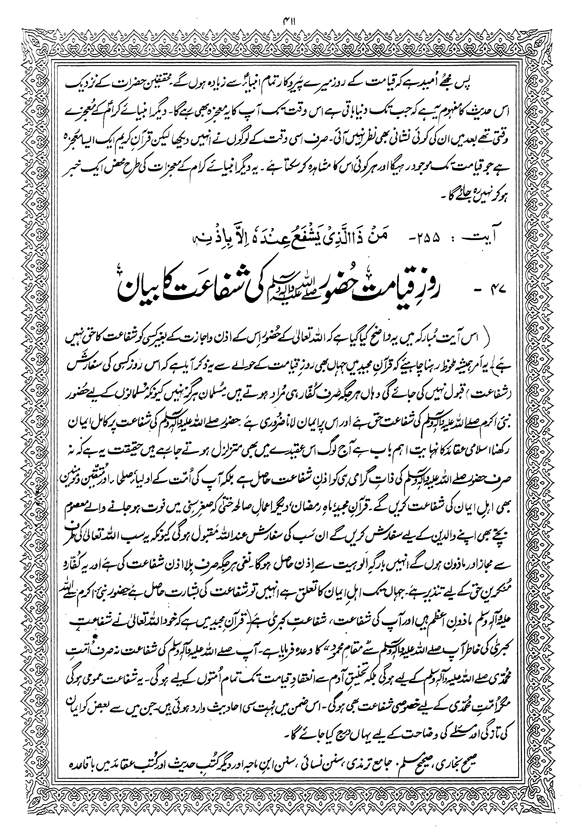 ۴۱۱
پس مجھے اُمید ہے کہ قیامت کے روز میرے پیروکار تمام انبیاءؑ سے زیادہ ہوں گے۔ محققین حضرات کے نزدیک
اس حدیث کا مفہوم یہ ہے کہ جب تک دنیا باقی ہے اس وقت تک آپ کا یہ معجزہ بھی رہے گا۔ دیگر انبیائے کرام کے معجزے
وقتی تھے بعد میں ان کی کوئی نشانی بھی نظر نہیں آئی۔ صرف اسی وقت کے لوگوں نے انہیں دیکھا لیکن قرآن کریم ایک ایسا معجزہ
ہے جو قیامت تک موجود رہیگا اور ہر کوئی اس کا مشاہدہ کر سکتا ہے۔ یہ دیگر انبیائے کرام کے معجزات کی طرح محض ایک خبر
ہو کر نہیں رہ جائے گا۔
آیت : ۲۵۵- مَنْ ذَا الَّذِیْ یَشْفَعُ عِنْدَهٗ اِلَّا بِاِذْنِهٖ
۴۷ - روزِ قیامت حُضور صلی اللہ علیہ وآلہ وسلم کی شفاعت کا بیان
( اس آیت مُبارکہ میں یہ واضح کیا گیا ہے کہ اللہ تعالیٰ کے حُضور اُس کے اذن و اجازت کے بغیر کسی کو شفاعت کا حق نہیں
ہے) یہ امر ہمیشہ ملحوظ رہنا چاہیئے کہ قرآن مجید میں جہاں بھی روزِ قیامت کے حوالے سے یہ ذکر آیا ہے کہ اس روز کسی کی سفارش
(شفاعت) قبول نہیں کی جائے گی وہاں ہر جگہ صرف کُفّار ہی مُراد ہوتے ہیں یہ مُسلمان ہرگز نہیں کیونکہ مُسلمانوں کے لیے حُضور
نبی اکرم صلے اللہ علیہ وآلہ وسلم کی شفاعت حق ہے اور اس پر ایمان لانا ضروری ہے حضور صلے اللہ علیہ وآلہ وسلم کی شفاعت پر کامل ایمان
رکھنا اسلامی عقائد کا نہایت اہم باب ہے آج لوگ اس عقیدے میں بھی متزلزل ہوتے جا رہے ہیں حقیقت یہ ہے کہ نہ
صرف حضور صلے اللہ علیہ وآلہ وسلم کی ذاتِ گرامی ہی کو اذنِ شفاعت حاصل ہے بلکہ آپ کی اُمت کے اولیاء، صلحاء اور متقین و مومنین
بھی اہل ایمان کی شفاعت کریں گے۔ قرآن مجید، ماہِ رمضان، دیگر اعمالِ صالحہ حتٰی کہ صغر سنی میں فوت ہو جانے والے معصوم
بچے بھی اپنے والدین کے لیے سفارش کریں گے ان سب کی سفارش عند اللہ مقبول ہو گی کیونکہ یہ سب اللہ تعالیٰ کی طرف
سے مجاز اور ماذون ہوں گے انہیں بارگہِ الوہیت سے اِذن حاصل ہوگا نفی ہر جگہ صرف بلا اذن شفاعت کی ہے اور یہ کُفّار و
منکرینِ حق کے لیے تنذیر ہے۔ جہاں تک اہل ایمان کا تعلق ہے انہیں تو شفاعت کی بشارت حاصل ہے حضور نبی اکرم صلے اللہ
علیہ وآلہ وسلم ماذون اعظم ہیں اور آپ کی شفاعت، شفاعت کبریٰ ہے (قرآن مجید میں ہے کہ خود اللہ تعالیٰ نے شفاعتِ
کبریٰ کی خاطر آپ صلے اللہ علیہ وآلہ وسلم سے "مقام محمود" کا وعدہ فرمایا ہے۔ آپ صلے اللہ علیہ وآلہ وسلم کی شفاعت نہ صرف اُمتِ
محمدی صلے اللہ علیہ وآلہ وسلم کے لیے ہو گی بلکہ تخلیقِ آدمؑ سے انعقادِ قیامت تک تمام اُمتوں کے لیے ہو گی۔ یہ شفاعت عمومی ہو گی
مگر اُمتِ محمدی کے لیے خصوصی شفاعت بھی ہو گی۔ اس ضمن میں بہت سی احادیث وارد ہوئی ہیں۔ جن میں سے بعض کو ایمان
کی تازگی اور مسئلے کی وضاحت کے لیے یہاں درج کیا جائے گا۔
صحیح بخاری، صحیح مسلم، جامع ترمذی، سنن نسائی، سنن ابن ماجہ اور دیگر کتب حدیث اور کُتب عقائد میں باقاعدہ